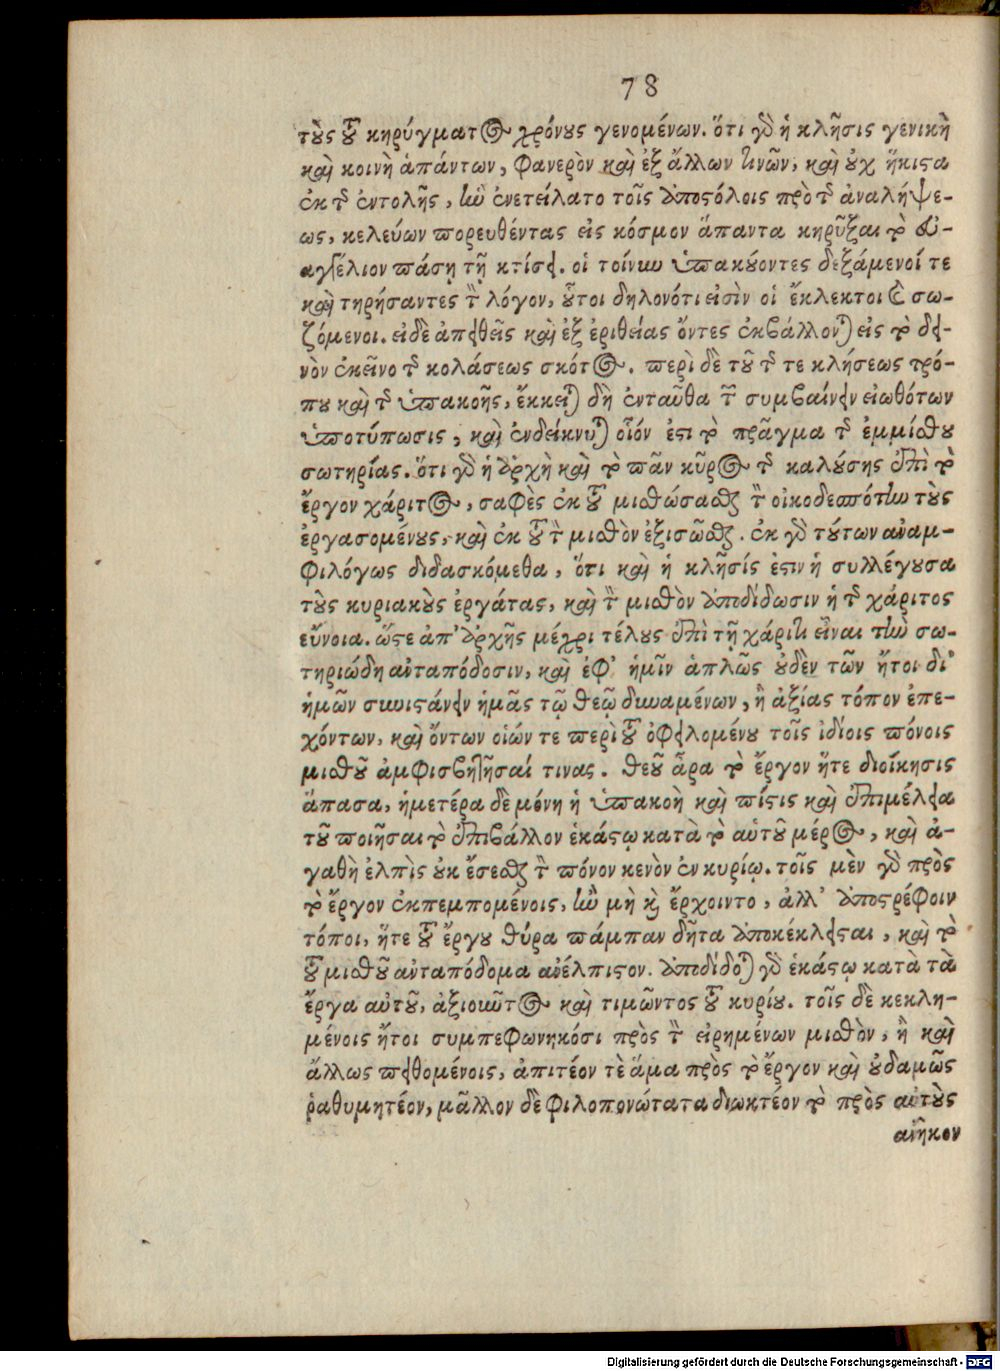 78
τοὺς τοῦ κηρύγματος χρόνους γενομένων. ὅτι γὰρ ἡ κλῆσις γενικὴ
καὶ κοινὴ ἁπάντων, φανερὸν καὶ ἐξ ἄλλων τινῶν, καὶ οὐχ ἥκιστα
ἐκ τῆς ἐντολῆς, ἣν ἐνετείλατο τοῖς ἀποστόλοις πρὸ τῆς ἀναλήψε-
ως, κελεύων πορευθέντας εἰς κόσμον ἅπαντα κηρῦξαι τὸ εὐ-
αγγέλιον πάσῃ τῇ κτίσει. οἱ τοίνυν ὑπακούοντες δεξάμενοί τε
καὶ τηρήσαντες τὸν λόγον, οὗτοι δηλονότι εἰσὶν οἱ ἔκλεκτοι καὶ σω-
ζόμενοι. εἰ δὲ ἀπειθεῖς καὶ ἐξ ἐριθείας ὄντες ἐκβάλλονται εἰς τὸ δει-
νὸν ἐκεῖνο τῆς κολάσεως σκότος. περὶ δὲ τοῦ τῆς τε κλήσεως τρό-
που καὶ τῆς ὑπακοῆς, ἔκκειται δὴ ἐνταῦθα τῶν συμβαίνειν εἰωθότων
ὑποτύπωσις, καὶ ἐνδείκνυται οἷόν ἐστι τὸ πρᾶγμα τῆς ἐμμίσθου
σωτηρίας. ὅτι γὰρ ἡ ἀρχὴ καὶ τὸ πᾶν κῦρος τῆς καλούσης ἐπὶ τὸ
ἔργον χάριτος, σαφὲς ἐκ τοῦ μισθώσασθαι τὸν οἰκοδεσπότην τοὺς
ἐργασομένους, καὶ ἐκ τοῦ τὸν μισθὸν ἐξισῶσθαι. ἐκ γὰρ τούτων ἀναμ-
φιλόγως διδασκόμεθα, ὅτι καὶ ἡ κλῆσίς ἐστιν ἡ συλλέγουσα
τοὺς κυριακοὺς ἐργάτας, καὶ τὸν μισθὸν ἀποδίδωσιν ἡ τῆς χάριτος
εὔνοια. ὥστε ἀπ' ἀρχῆς μέχρι τέλους ἐπὶ τῇ χάριτι εἶναι τὴν σω-
τηριώδη ἀνταπόδοσιν, καὶ ἐφ' ἡμῖν ἁπλῶς οὐδὲν τῶν ἤτοι δι'
ἡμῶν συνιστάνειν ἡμᾶς τῷ θεῷ δυναμένων, ἢ ἀξίας τόπον ἐπε-
χόντων, καὶ ὄντων οἱών τε περὶ τοῦ ὀφειλομένου τοῖς ἰδίοις πόνοις
μισθοῦ ἀμφισβητῆσαί τινας. θεοῦ ἆρα τὸ ἔργον ἥτε διοίκησις
ἅπασα, ἡμετέρα δὲ μόνη ἡ ὑπακοὴ καὶ πίστις καὶ ἐπιμέλεια
τοῦ ποιῆσαι τὸ ἐπιβάλλον ἑκάστῳ κατὰ τὸ αὑτοῦ μέρος, καὶ ἀ-
γαθὴ ἐλπὶς οὐκ ἔσεσθαι τὸν πόνον κενὸν ἐν κυρίῳ. τοῖς μὲν γὰρ πρὸς
τὸ ἔργον ἐκπεμπομένοις, ἢν μὴ καὶ ἔρχοιντο, ἀλλ' ἀποστρέφοιν
τόποι, ἥτε τοῦ ἔργου θύρα πάμπαν δῆτα ἀποκέκλεισται, καὶ τὸ
τοῦ μισθοῦ ἀνταπόδομα ἀνέλπιστον. ἀποδίδοται γὰρ ἑκάστῳ κατὰ τὰ
ἔργα αὐτοῦ, ἀξιοῦντος καὶ τιμῶντος τοῦ κυρίου. τοῖς δὲ κεκλη-
μένοις ἤτοι συμπεφωνηκόσι πρὸς τὸν εἰρημένων μισθὸν, ἢ καὶ
ἄλλως πειθομένοις, ἀπιτέον τὲ ἅμα πρὸς τὸ ἔργον καὶ οὐδαμῶς
ῥαθυμητέον, μᾶλλον δὲ φιλοπονώτατα διωκτέον τὸ πρὸς αὐτοὺς
ἀνῆκον
Digitalisierung gefördert durch die Deutsche Forschungsgemeinschaft - DFG